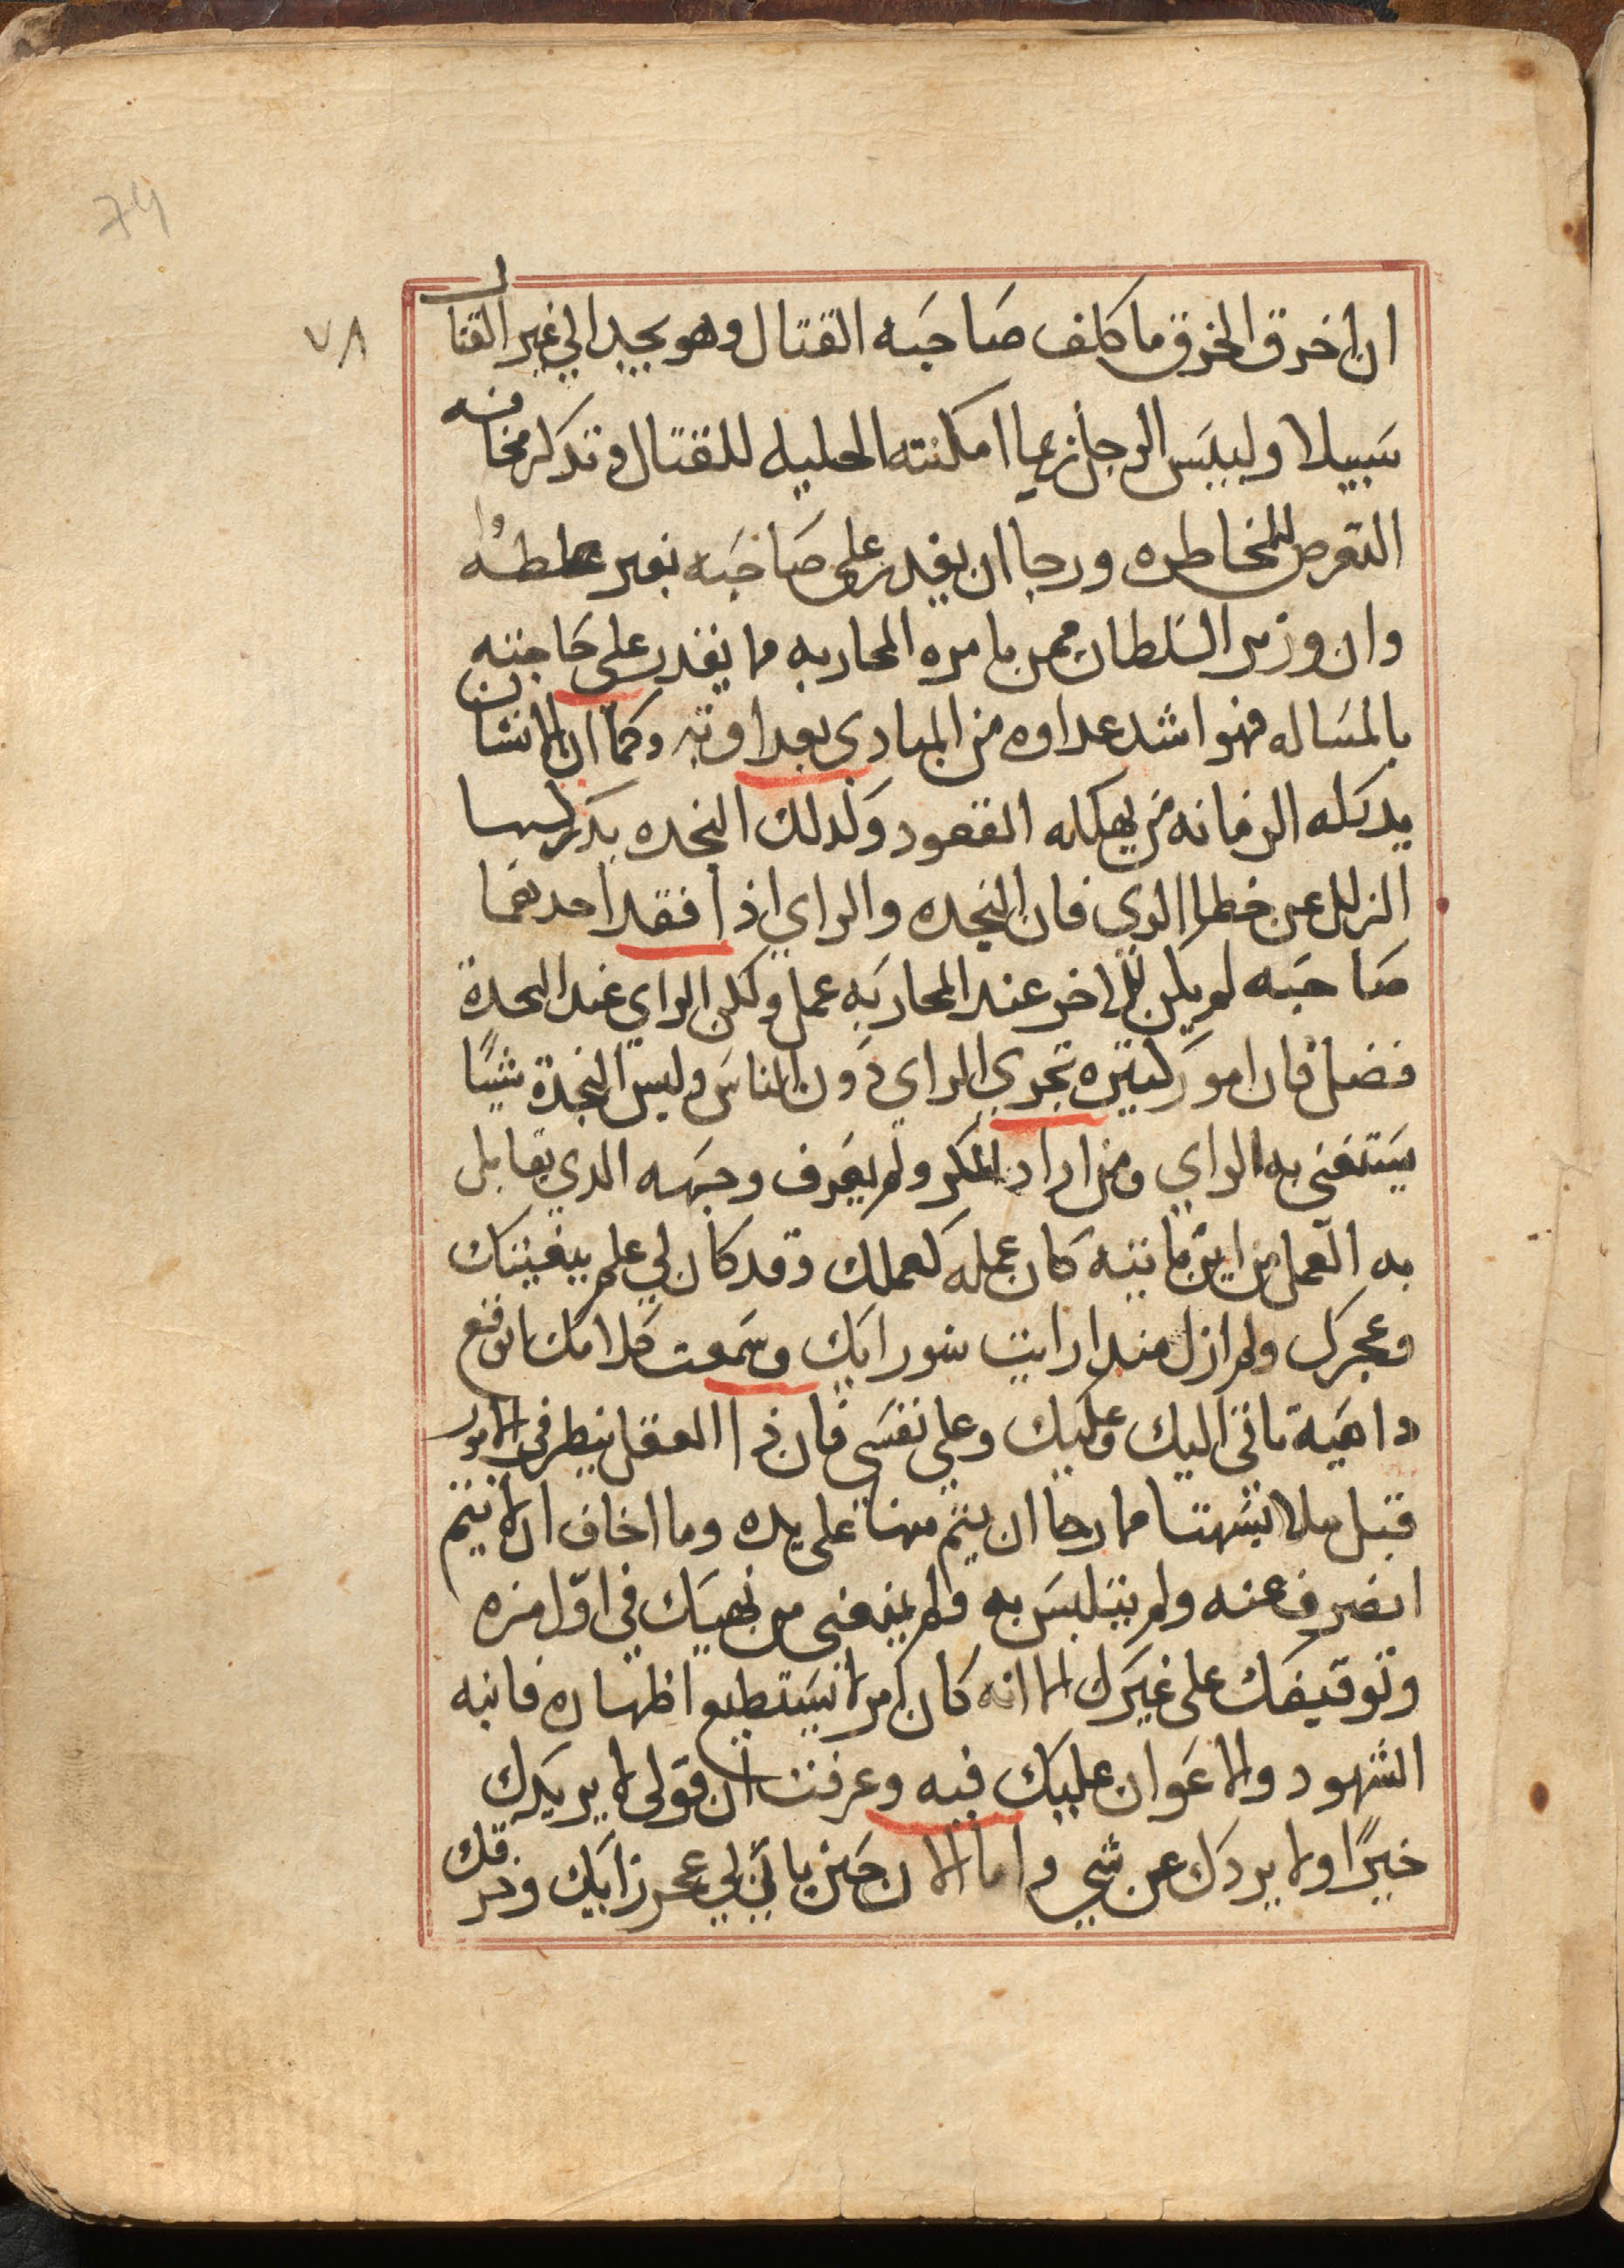 74
٧٨
ان اخرق الخرق ما كلف صاحبه القتال وهو يجد الي غير القتال
سبيلا ولبيس الرجل زعيما امكنته الحليه للقتال وتدكر مخافه
التعرض للمخاطره ورجا ان يقدر علي صاحبه بغير
وان وزير السلطان ممن يامره المحاربه ما يقدر علي حاجته
بالمساله فهوا شد عداوه من المبادي بعداوته وكما ان الانسان
يدكله الزمانه من يهكله القعود وكدلك النجده يدكر لسها
الزلل عن خطا الدي فان النجده والراي اذا فقد احدهما
صاحبه لم يكن للاخر عند المحاربه عمل ولكن الراي عند النجدة
فضل فان امور كتيره تجري الراي دون الناس وليس النجدة شيًا
يستغني به الراي ومن اراد المكر ولم يعرف وجهه الدي يقابل
به العمل من اين ياتيه كان عمله كعملك وقد كان لي علم ببغيتك
وعجرك ولم ازل مندا رايت سورايك وسمعت كلامك اتوقع
داهية تاتي اليك وعليك وعلي نفسي فان ذا العقل ينطر في الامور
قبل ملا بشهتا مما رجا ان يتم منها علي يده وما اخاف ان لا يتم
انصرف عنه ولم يتلبس به ولم يمنعني من نهيك في اول مره
وتوقيفك علي غيرك الا انه كان امر لا نستطيع اظهاره فانبه
الشهود والاعوان عليك فيه وعرفت ان قولي لا يريدك
خيرًا ولا يردك عن شي واما الان حين ياتي لي عجز رايك وخرقك